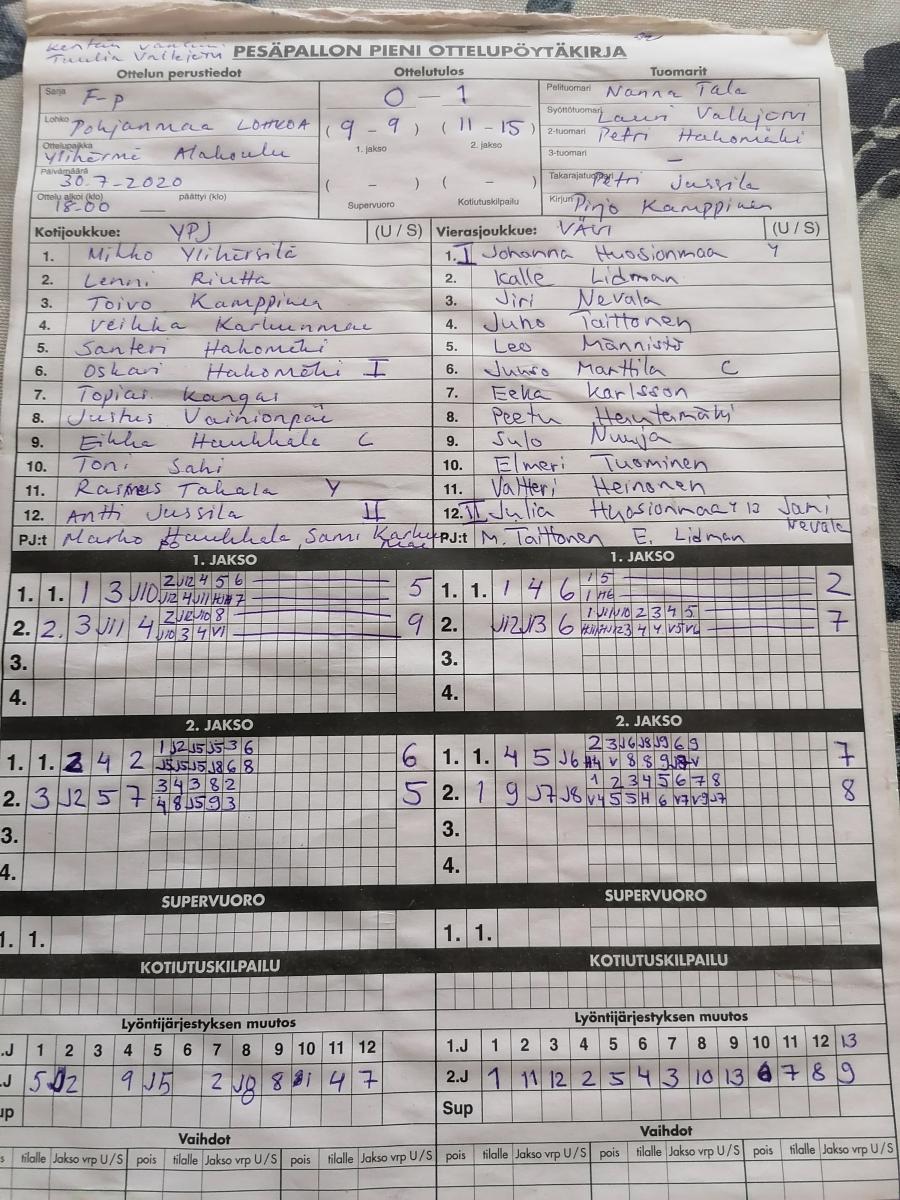 PESÄPALLON PIENI OTTELUPÖYTÄKIRJA
Ottelun perustiedot
Ottelutulos
Tuomarit
Sarja F-p
0 - 1
Pelituomari Nanna Tala
Lohko Pohjanmaa LOHKOA
( 9 - 9 ) ( 11 - 15 )
Syöttötuomari Lauri Valkjärvi
1. jakso 2. jakso
2-tuomari Petri Hakomäki
Ottelupaikka Ylihärmä Alakoulu
3-tuomari —
Päivämäärä 30.7-2020
( - ) ( - )
Takarajatuomari Petri Jussila
Ottelu alkoi (klo) 18-00 päättyi (klo) —
Supervuoro Kotiutuskilpailu
Kirjuri Pirjo Kamppinen
Kotijoukkue: YPJ (U / S)
Vierasjoukkue: VäVi (U / S)
1. Mikko Ylihärsilä
1. I Johanna Huosionmaa Y
2. Lenni Riutta
2. Kalle Lidman
3. Toivo Kamppinen
3. Jiri Nevala
4. Veikka Karhunmaa
4. Juho Taittonen
5. Santeri Hakomäki
5. Leo Männistö
6. Oskari Hakomäki I
6. Juuso Marttila C
7. Topias Kangas
7. Eeka Karlsson
8. Justus Vainionpää
8. Peetu Hautamäki
9. Eikka Haukkala C
9. Sulo
10. Toni Sahi
10. Elmeri Tuominen
11. Rasmus Takala Y
11. Valtteri Heinonen
12. Antti Jussila II
12. II Julia Huosionmaa Y 13 Jani Nevala
PJ:t Marko Haukkala, Sami
PJ:t M. Taittonen E. Lidman
1. JAKSO
1. JAKSO
1. 1. 1 3 J10 2 J12 4 5 6 5
1. 1. 1 4 6 1 5 2
2. 2. 3 J11 4 2 J12 J10 8 9
J10 3 4 V1
2. J12 J13 6 1 J11 J10 2 3 4 5 7
3.
3.
4.
4.
2. JAKSO
2. JAKSO
1. 1. 2 4 2 1 J2 J5 J5 3 6 6
J5 J5 J5 J8 6 8
1. 1. 4 5 J6 2 3 J6 J8 J9 6 9 7
2. 3 J2 5 7 3 4 3 8 2 5
4 8 J5 9 3
2. 1 9 J7 J8 1 2 3 4 5 6 7 8 8
V4 5 5 H 6 V7 V9 J7
3.
3.
4.
4.
SUPERVUORO
SUPERVUORO
1. 1.
1. 1.
KOTIUTUSKILPAILU
KOTIUTUSKILPAILU
Lyöntijärjestyksen muutos
Lyöntijärjestyksen muutos
.J 1 2 3 4 5 6 7 8 9 10 11 12
1.J 1 2 3 4 5 6 7 8 9 10 11 12 13
.J 5 J2 9 J5 2 J8 8 4 7
2.J 1 11 12 2 5 4 3 10 13 6 7 8 9
up
Sup
Vaihdot
Vaihdot
s tilalle Jakso vrp U / S pois tilalle Jakso vrp U / S pois tilalle Jakso vrp U / S
pois tilalle Jakso vrp U / S pois tilalle Jakso vrp U / S pois tilalle Jakso vrp U / S